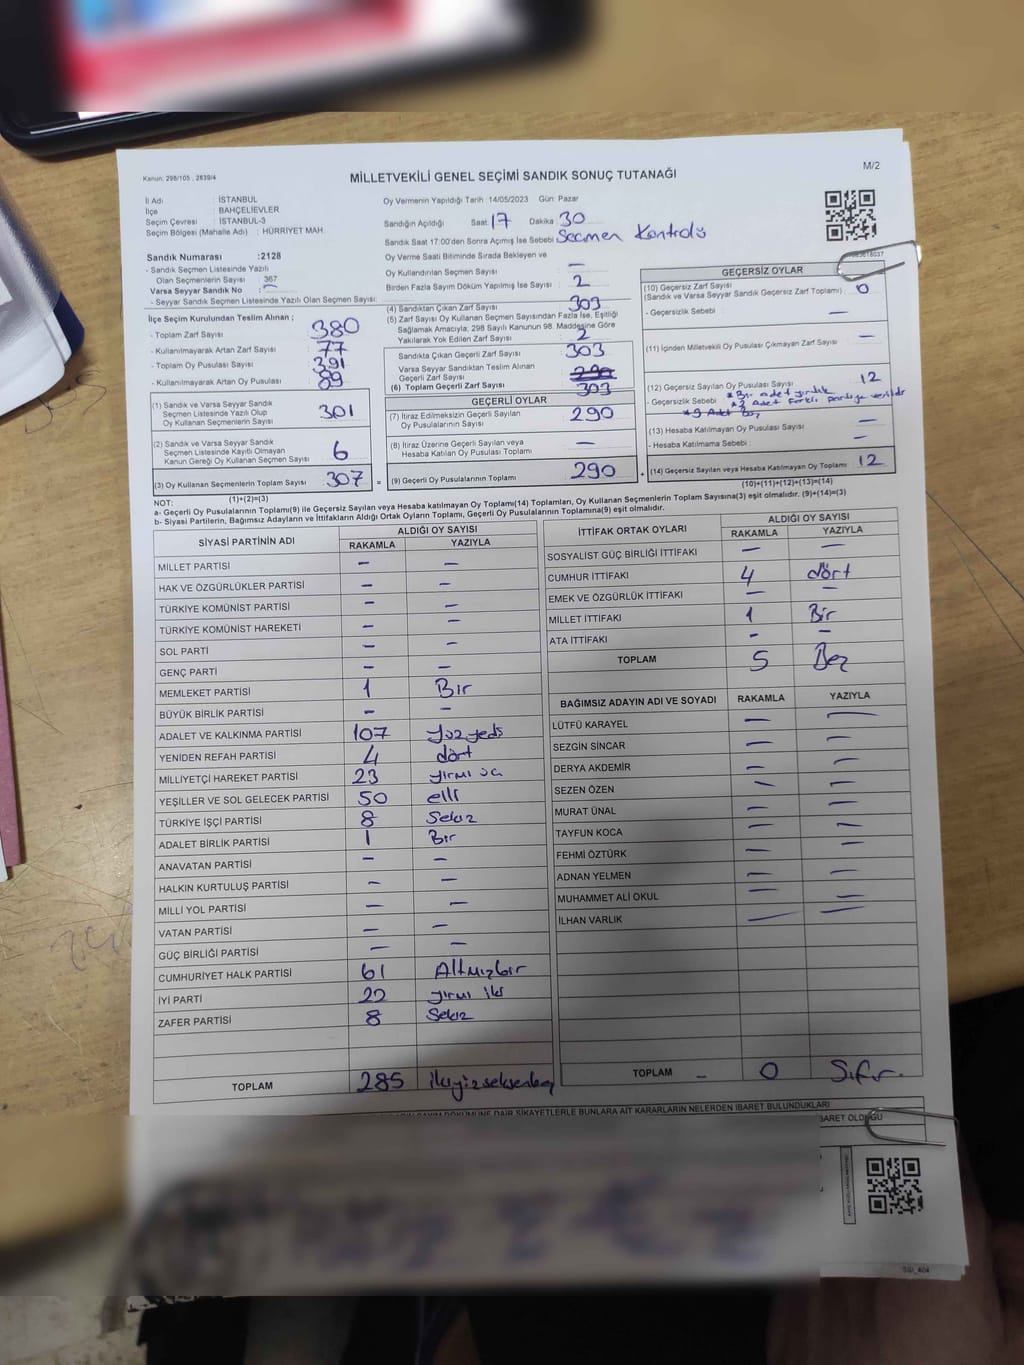 Kanun: 298/105 , 2839/4
M/2
MİLLETVEKİLİ GENEL SEÇİMİ SANDIK SONUÇ TUTANAĞI
İl Adı : İSTANBUL
İlçe : BAHÇELİEVLER
Seçim Çevresi : İSTANBUL-3
Seçim Bölgesi (Mahalle Adı) : HÜRRİYET MAH.
Sandık Numarası :2128
- Sandık Seçmen Listesinde Yazılı
Olan Seçmenlerin Sayısı : 367
Varsa Seyyar Sandık No : -
- Seyyar Sandık Seçmen Listesinde Yazılı Olan Seçmen Sayısı:
Oy Vermenin Yapıldığı Tarih :14/05/2023 Gün: Pazar
Sandığın Açıldığı Saat: 17 Dakika : 30
Sandık Saat 17:00'den Sonra Açımış İse Sebebi Seçmen Kontrolü
Oy Verme Saati Bitiminde Sırada Bekleyen ve
Oy Kullandırılan Seçmen Sayısı : -
Birden Fazla Sayım Döküm Yapılmış İse Sayısı : 2
İlçe Seçim Kurulundan Teslim Alınan ;
- Toplam Zarf Sayısı : 380
- Kullanılmayarak Artan Zarf Sayısı : 77
- Toplam Oy Pusulası Sayısı : 391
- Kullanılmayarak Artan Oy Pusulası : 89
(1) Sandık ve Varsa Seyyar Sandık
Seçmen Listesinde Yazılı Olup
Oy Kullanan Seçmenlerin Sayısı 301
(2) Sandık ve Varsa Seyyar Sandık
Seçmen Listesinde Kayıtlı Olmayan
Kanun Gereği Oy Kullanan Seçmen Sayısı 6
(3) Oy Kullanan Seçmenlerin Toplam Sayısı 307 =
(1)+(2)=(3)
(4) Sandıktan Çıkan Zarf Sayısı 303
(5) Zarf Sayısı Oy Kullanan Seçmen Sayısından Fazla İse, Eşitliği
Sağlamak Amacıyla, 298 Sayılı Kanunun 98. Maddesine Göre
Yakılarak Yok Edilen Zarf Sayısı : 2
Sandıkta Çıkan Geçerli Zarf Sayısı 303
Varsa Seyyar Sandıktan Teslim Alınan
Geçerli Zarf Sayısı
(6) Toplam Geçerli Zarf Sayısı 303
GEÇERLİ OYLAR
(7) İtiraz Edilmeksizin Geçerli Sayılan
Oy Pusulası Toplamı 290
(8) İtiraz Üzerine Geçerli Sayılan veya
Hesaba Katılan Oy Pusulası Toplamı -
(9) Geçerli Oy Pusulalarının Toplamı 290 +
GEÇERSİZ OYLAR
(10) Geçersiz Zarf Sayısı
(Sandık ve Varsa Seyyar Sandık Geçersiz Zarf Toplamı) 0
- Geçersizlik Sebebi : -
(11) İçinden Milletvekili Oy Pusulası Çıkmayan Zarf Sayısı -
(12) Geçersiz Sayılan Oy Pusulası Sayısı 12
- Geçersizlik Sebebi *Bir adet yırtık
*2 Adet Farklı partiye verilidr
*9 Adet Boş
(13) Hesaba Katılmayan Oy Pusulası Sayısı -
- Hesaba Katılmama Sebebi : -
(14) Geçersiz Sayılan veya Hesaba Katılmayan Oy Toplamı 12
(10)+(11)+(12)+(13)=(14)
NOT:
a- Geçerli Oy Pusulasının Toplamı(9) ile Geçersiz Sayılan veya Hesaba Katılmayan Oy Toplamı(14) Toplamları, Oy Kullanan Seçmenlerin Toplam Sayısına(3) eşit olmalıdır. (9)+(14)=(3)
b- Siyasi Partilerin, Bağımsız Adayların ve İttifakların Aldığı Ortak Oyların Toplamı, Geçerli Oy Pusulalarının Toplamına(9) eşit olmalıdır.
SİYASİ PARTİNİN ADI ALDIĞI OY SAYISI
RAKAMLA YAZIYLA
MİLLET PARTİSİ - -
HAK VE ÖZGÜRLÜKLER PARTİSİ - -
TÜRKİYE KOMÜNİST PARTİSİ - -
TÜRKİYE KOMÜNİST HAREKETİ - -
SOL PARTİ - -
GENÇ PARTİ - -
MEMLEKET PARTİSİ 1 Bir
BÜYÜK BİRLİK PARTİSİ - -
ADALET VE KALKINMA PARTİSİ 107 yüzyedi
YENİDEN REFAH PARTİSİ 4 dört
MİLLİYETÇİ HAREKET PARTİSİ 23 yirmi üç
YEŞİLLER VE SOL GELECEK PARTİSİ 50 elli
TÜRKİYE İŞÇİ PARTİSİ 8 Sekiz
ADALET BİRLİK PARTİSİ 1 Bir
ANAVATAN PARTİSİ - -
HALKIN KURTULUŞ PARTİSİ - -
MİLLİ YOL PARTİSİ - -
VATAN PARTİSİ - -
GÜÇ BİRLİĞİ PARTİSİ - -
CUMHURİYET HALK PARTİSİ 61 Altmışbir
İYİ PARTİ 22 yirmi iki
ZAFER PARTİSİ 8 Sekiz
TOPLAM 285 ikiyüzseksenbeş
İTTİFAK ORTAK OYLARI ALDIĞI OY SAYISI
RAKAMLA YAZIYLA
SOSYALİST GÜÇ BİRLİĞİ İTTİFAKI - -
CUMHUR İTTİFAKI 4 dört
EMEK VE ÖZGÜRLÜK İTTİFAKI - -
MİLLET İTTİFAKI 1 Bir
ATA İTTİFAKI - -
TOPLAM 5 Beş
BAĞIMSIZ ADAYIN ADI VE SOYADI RAKAMLA YAZIYLA
LÜTFÜ KARAYEL - -
SEZGİN SİNCAR - -
DERYA AKDEMİR - -
SEZEN ÖZEN - -
MURAT ÜNAL - -
TAYFUN KOCA - -
FEHMİ ÖZTÜRK - -
ADNAN YELMEN - -
MUHAMMET ALİ OKUL - -
İLHAN VARLIK - -
TOPLAM - 0 Sıfır.
SAYIM DÖKÜMÜNE DAİR ŞİKAYETLERLE BUNLARA AİT KARARLARIN NELERDEN İBARET BULUNDUKLARI
İBARET OLDUĞU